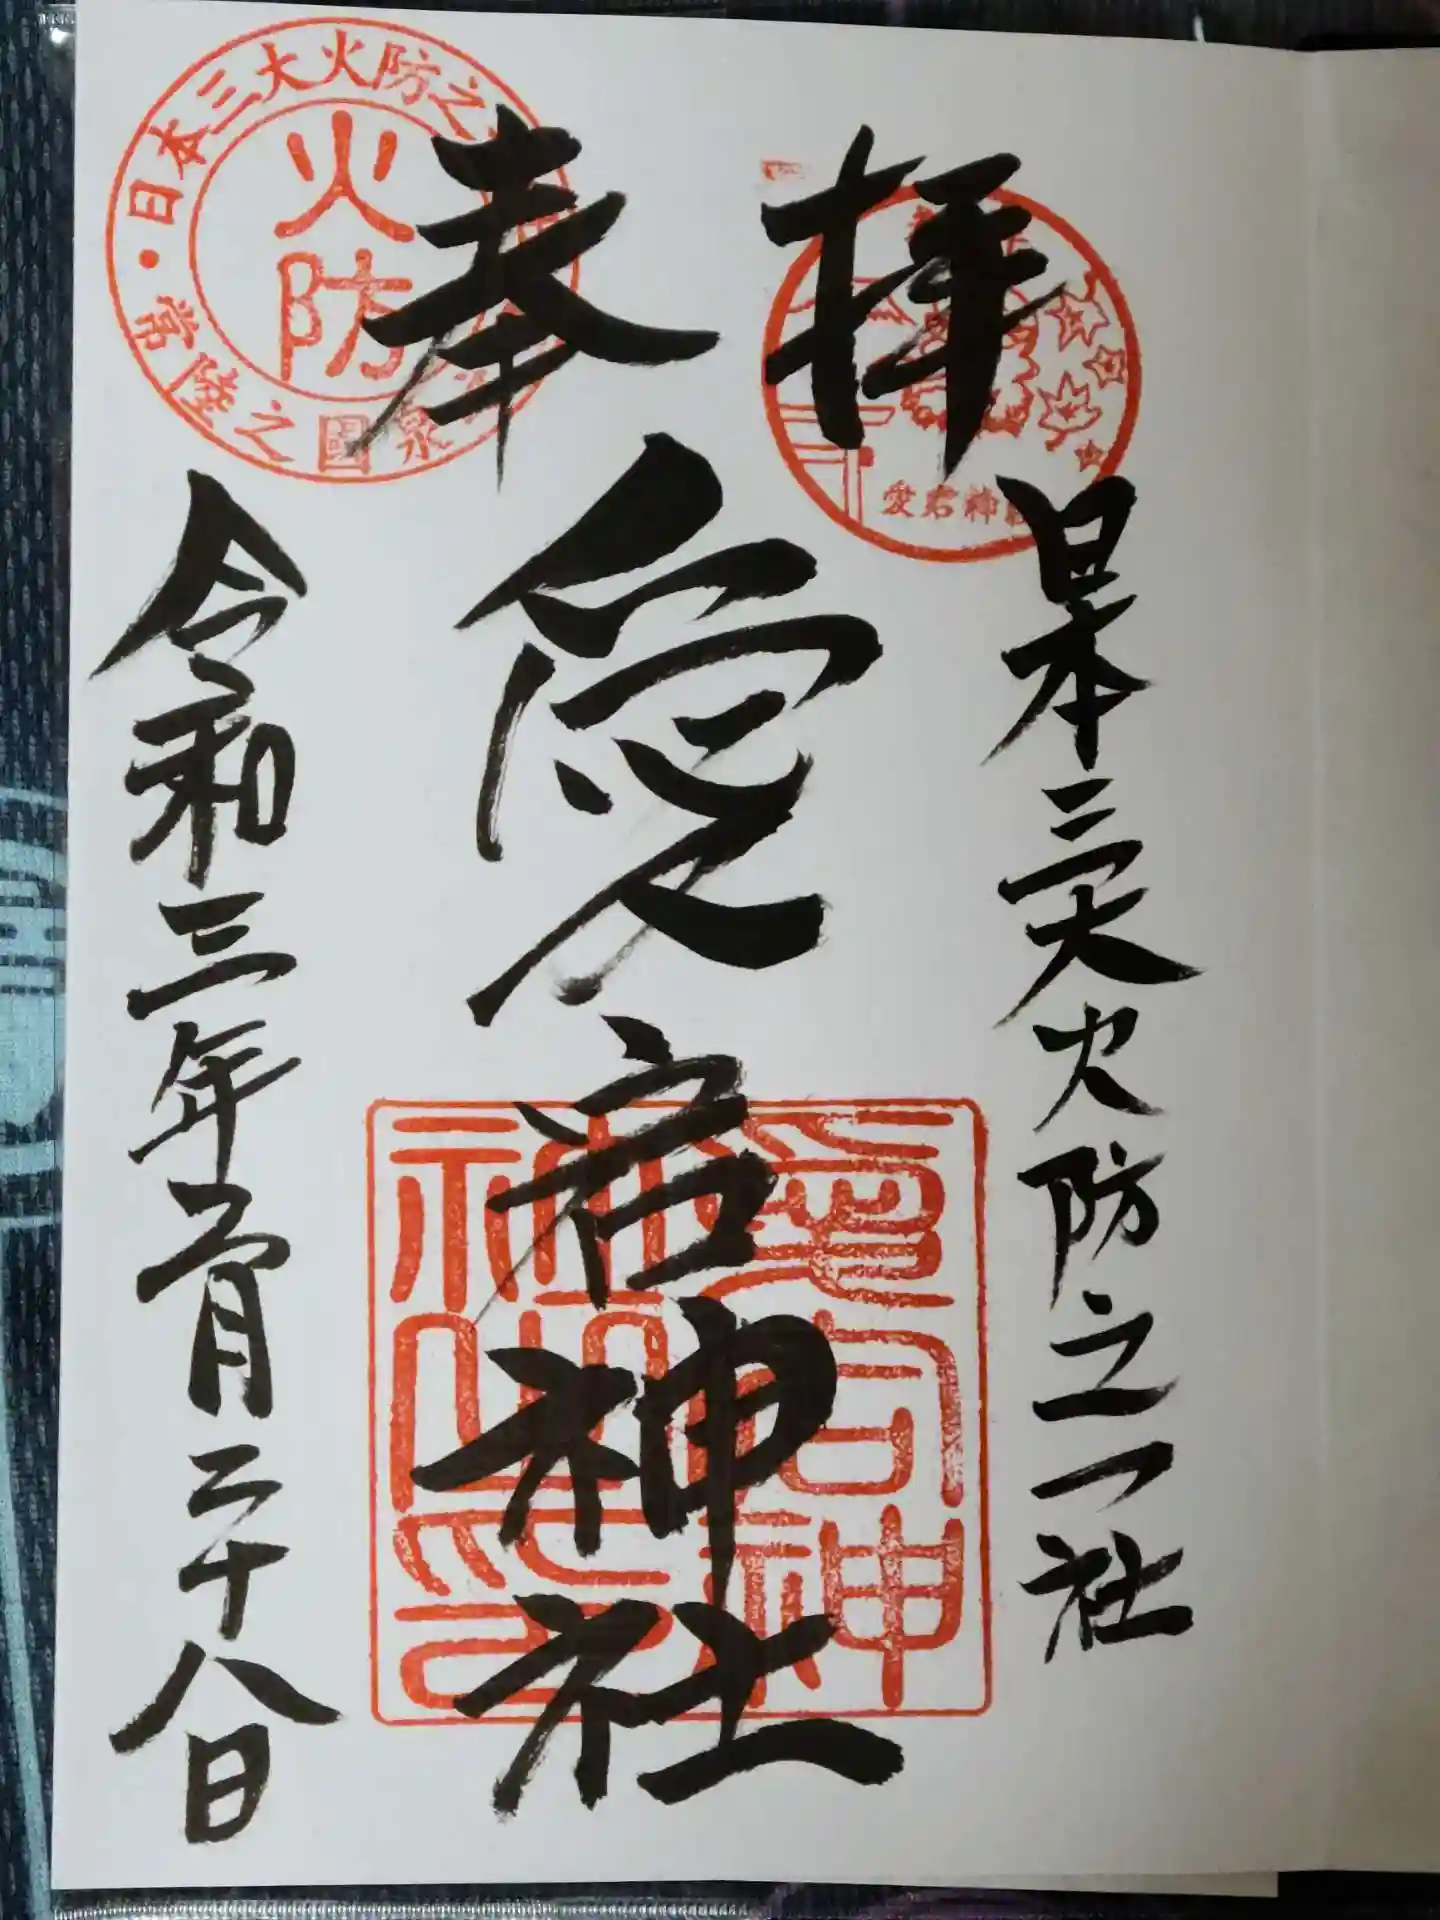 奉拝
日本三大火防之一社
愛宕神社
令和三年五月二十八日
日本三大火防之
火防
常陸之國泉
愛宕神社
愛宕神社之印